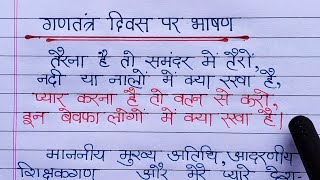 गणतंत्र दिवस पर भाषण
तैरना है तो समंदर में तैरो,
नदी या नालों में क्या रखा है,
प्यार करना है तो वतन से करो,
इन बेवफा लोगों में क्या रखा है।
माननीय मुख्य अतिथि, आदरणीय
शिक्षकगण और मेरे प्यारे